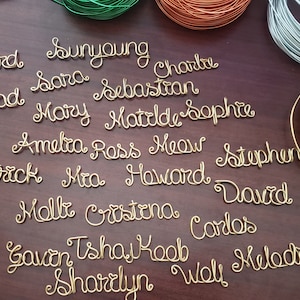 Sunyoung
Charlie
Sara
Sebastian
Mary Matilde Sophie
Amelia Ross Meow Stephen
Mia Howard David
Molli Cristina Carlos
Gavin Isha Koob
Sharilyn Wolf